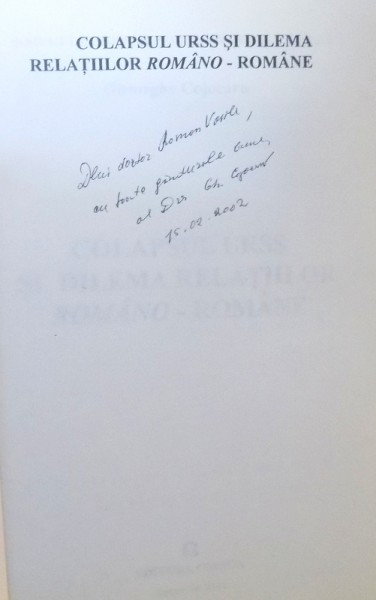 COLAPSUL URSS ŞI DILEMA
RELAŢIILOR ROMÂNO - ROMÂNE
Dlui doctor Roman Vasile,
cu toate gândurile bune,
al Dvs. Gh. Cojocaru
15.02.2002
COLAPSUL URSS
ŞI DILEMA RELAŢIILOR
ROMÂNO - ROMÂNE